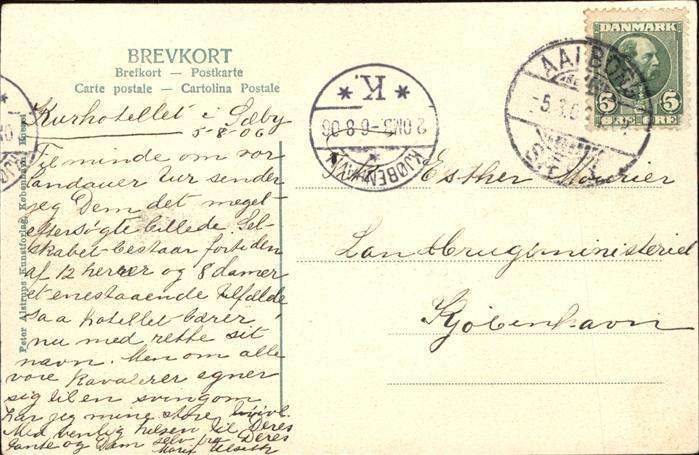 BREVKORT
Brefkort — Postkarte
Carte postale — Cartolina Postale
Kurhotellet i Sæby
5-8-06
Til minde om vor
Landauer tur sender
jeg Dem det meget
eftersøgte billede. Sel-
skabet bestaar fortiden
af 12 herrer og 8 damer
et enestaaende tilfælde
saa hotellet bærer
nu med rette sit
navn. Men om alle
vore kavalerer egner
sig til en svingom
har jeg mine store
Med venlig hilsen til Deres
Tante og Dem selv fra Deres
Peter Alstrups Kunstforlag, København. Eneret
DANMARK
5 5
ØRE
AALBORG
KJØBENHAVN
K.
2.OMB. 6-8-06
Esther Mourier
Landbrugsministeriet
Kjöbenhavn